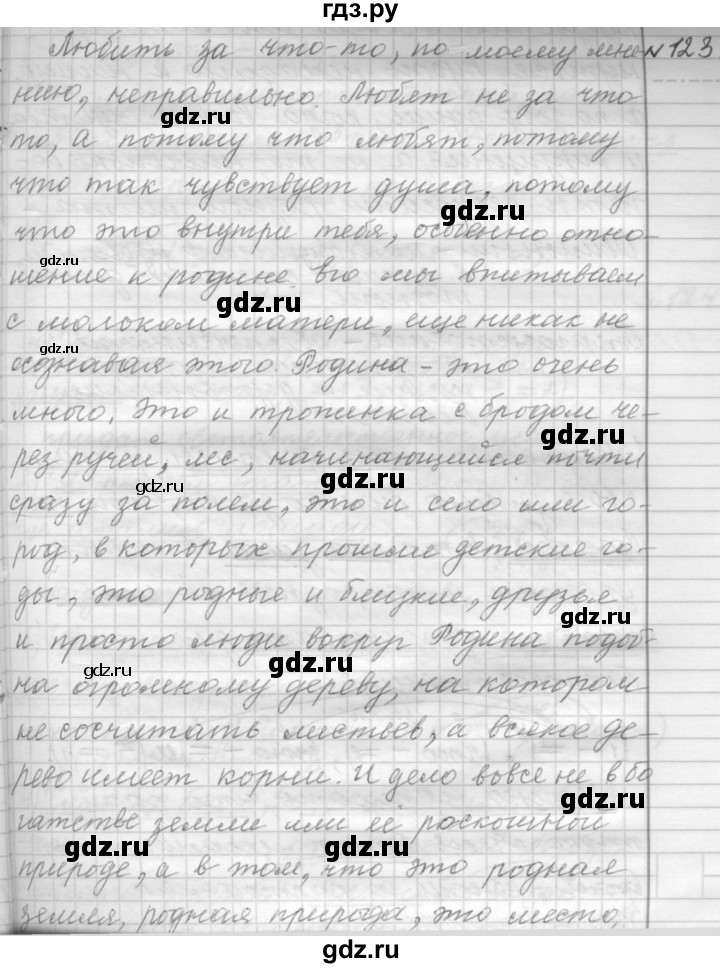 гдз.ру
Любить за что-то, по моему мне- №123
нию, неправильно. Любят не за что
то, а потому что любят, потому
что так чувствует душа, потому
что это внутри тебя, особенно отно-
шение к родине. Его мы впитываем
с молоком матери, еще никак не
осознавая этого. Родина - это очень
много. Это и тропинка с бродом че-
рез ручей, лес, начинающийся почти
сразу за полем, это и село или го-
род, в которых прошли детские го-
ды, это родные и близкие, друзья
и просто люди вокруг Родина подоб-
на огромному дереву, на котором
не сосчитать листьев, а всякое де-
рево имеет корни. И дело вовсе не в бо
гатстве земли или её роскошной
природе, а в том, что это родная
земля, родная природа, это место,
gdz.ru
gdz.ru
gdz.ru
gdz.ru
gdz.ru
gdz.ru
gdz.ru
gdz.ru
gdz.ru
gdz.ru
gdz.ru
gdz.ru
gdz.ru
gdz.ru